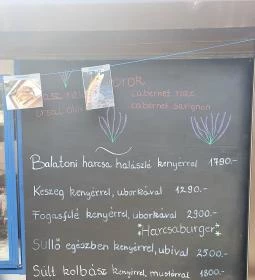 cabernet
cabernet
Balatoni harcsa halászlé kenyérrel 1790.-
Keszeg kenyérrel, uborkával 1290.-
Fogasfilé kenyérrel, uborkával 2900.-
*Harcsaburger*
Süllő egészben kenyérrel, ubival 2500.-
Sült kolbász kenyérrel, mustárral 1800.-